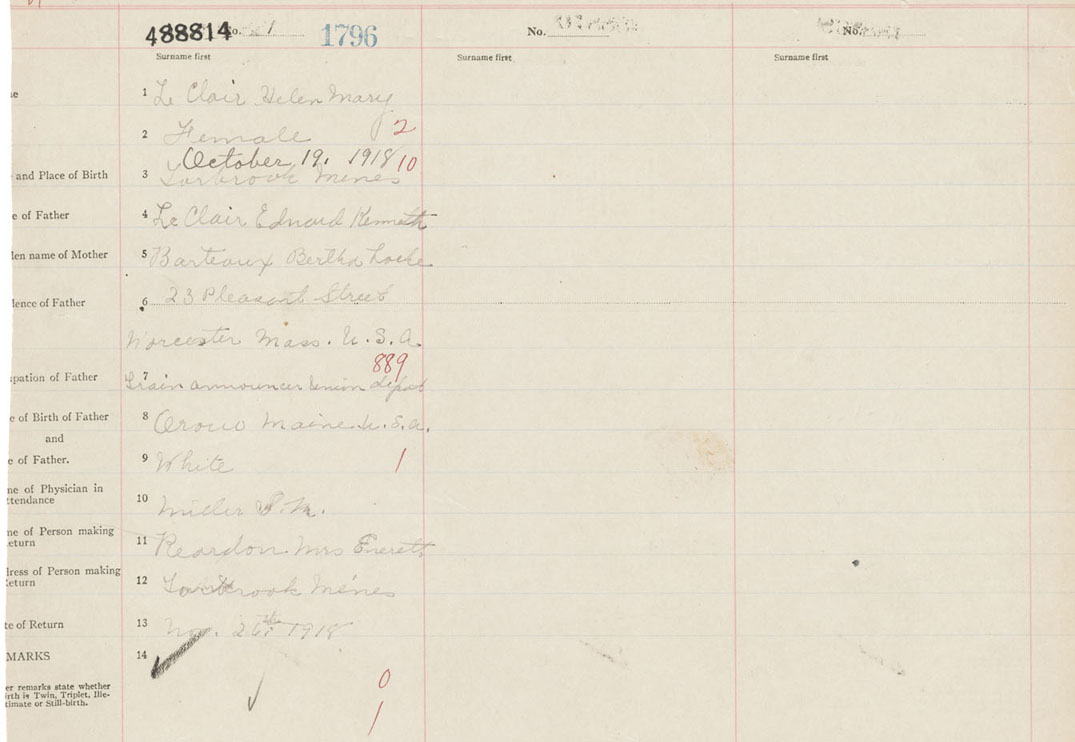 488814 No. 1 1796 No. No.
Surname first Surname first Surname first
1 Le Clair Helen Mary
2 Female 2
October 19, 1918 10
and Place of Birth 3 Torbrook Mines
e of Father 4 Le Clair Edward Kenneth
den name of Mother 5 Barteaux Bertha Locke
dence of Father 6 23 Pleasant Street
Worcester Mass. U.S.A.
889
pation of Father 7 Train announcer Union depot
e of Birth of Father 8 Orono Maine U.S.A.
and
e of Father. 9 White 1
ne of Physician in
ttendance 10 Miller S. N.
me of Person making
eturn 11 Reardon Mrs Everett
dress of Person making
eturn 12 Torbrook Mines
te of Return 13 Nov. 26th 1918
MARKS 14
er remarks state whether
irth is Twin, Triplet, Ille-
timate or Still-birth.
0
1